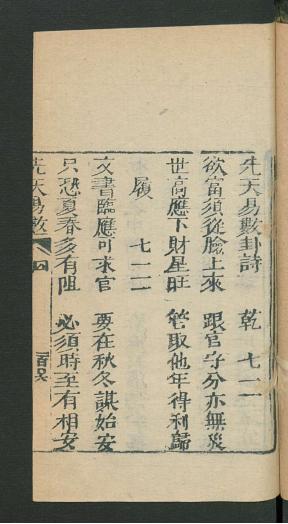 先天易數卦詩　乾　七一一
欲富須從臉上來　跟官守分亦無災
世高應下財星旺　管取他年得利歸
履　七二一
文書臨應可求官　要在秋冬謀始安
只恐夏春多有阻　必須時至有相安
先天易數　四